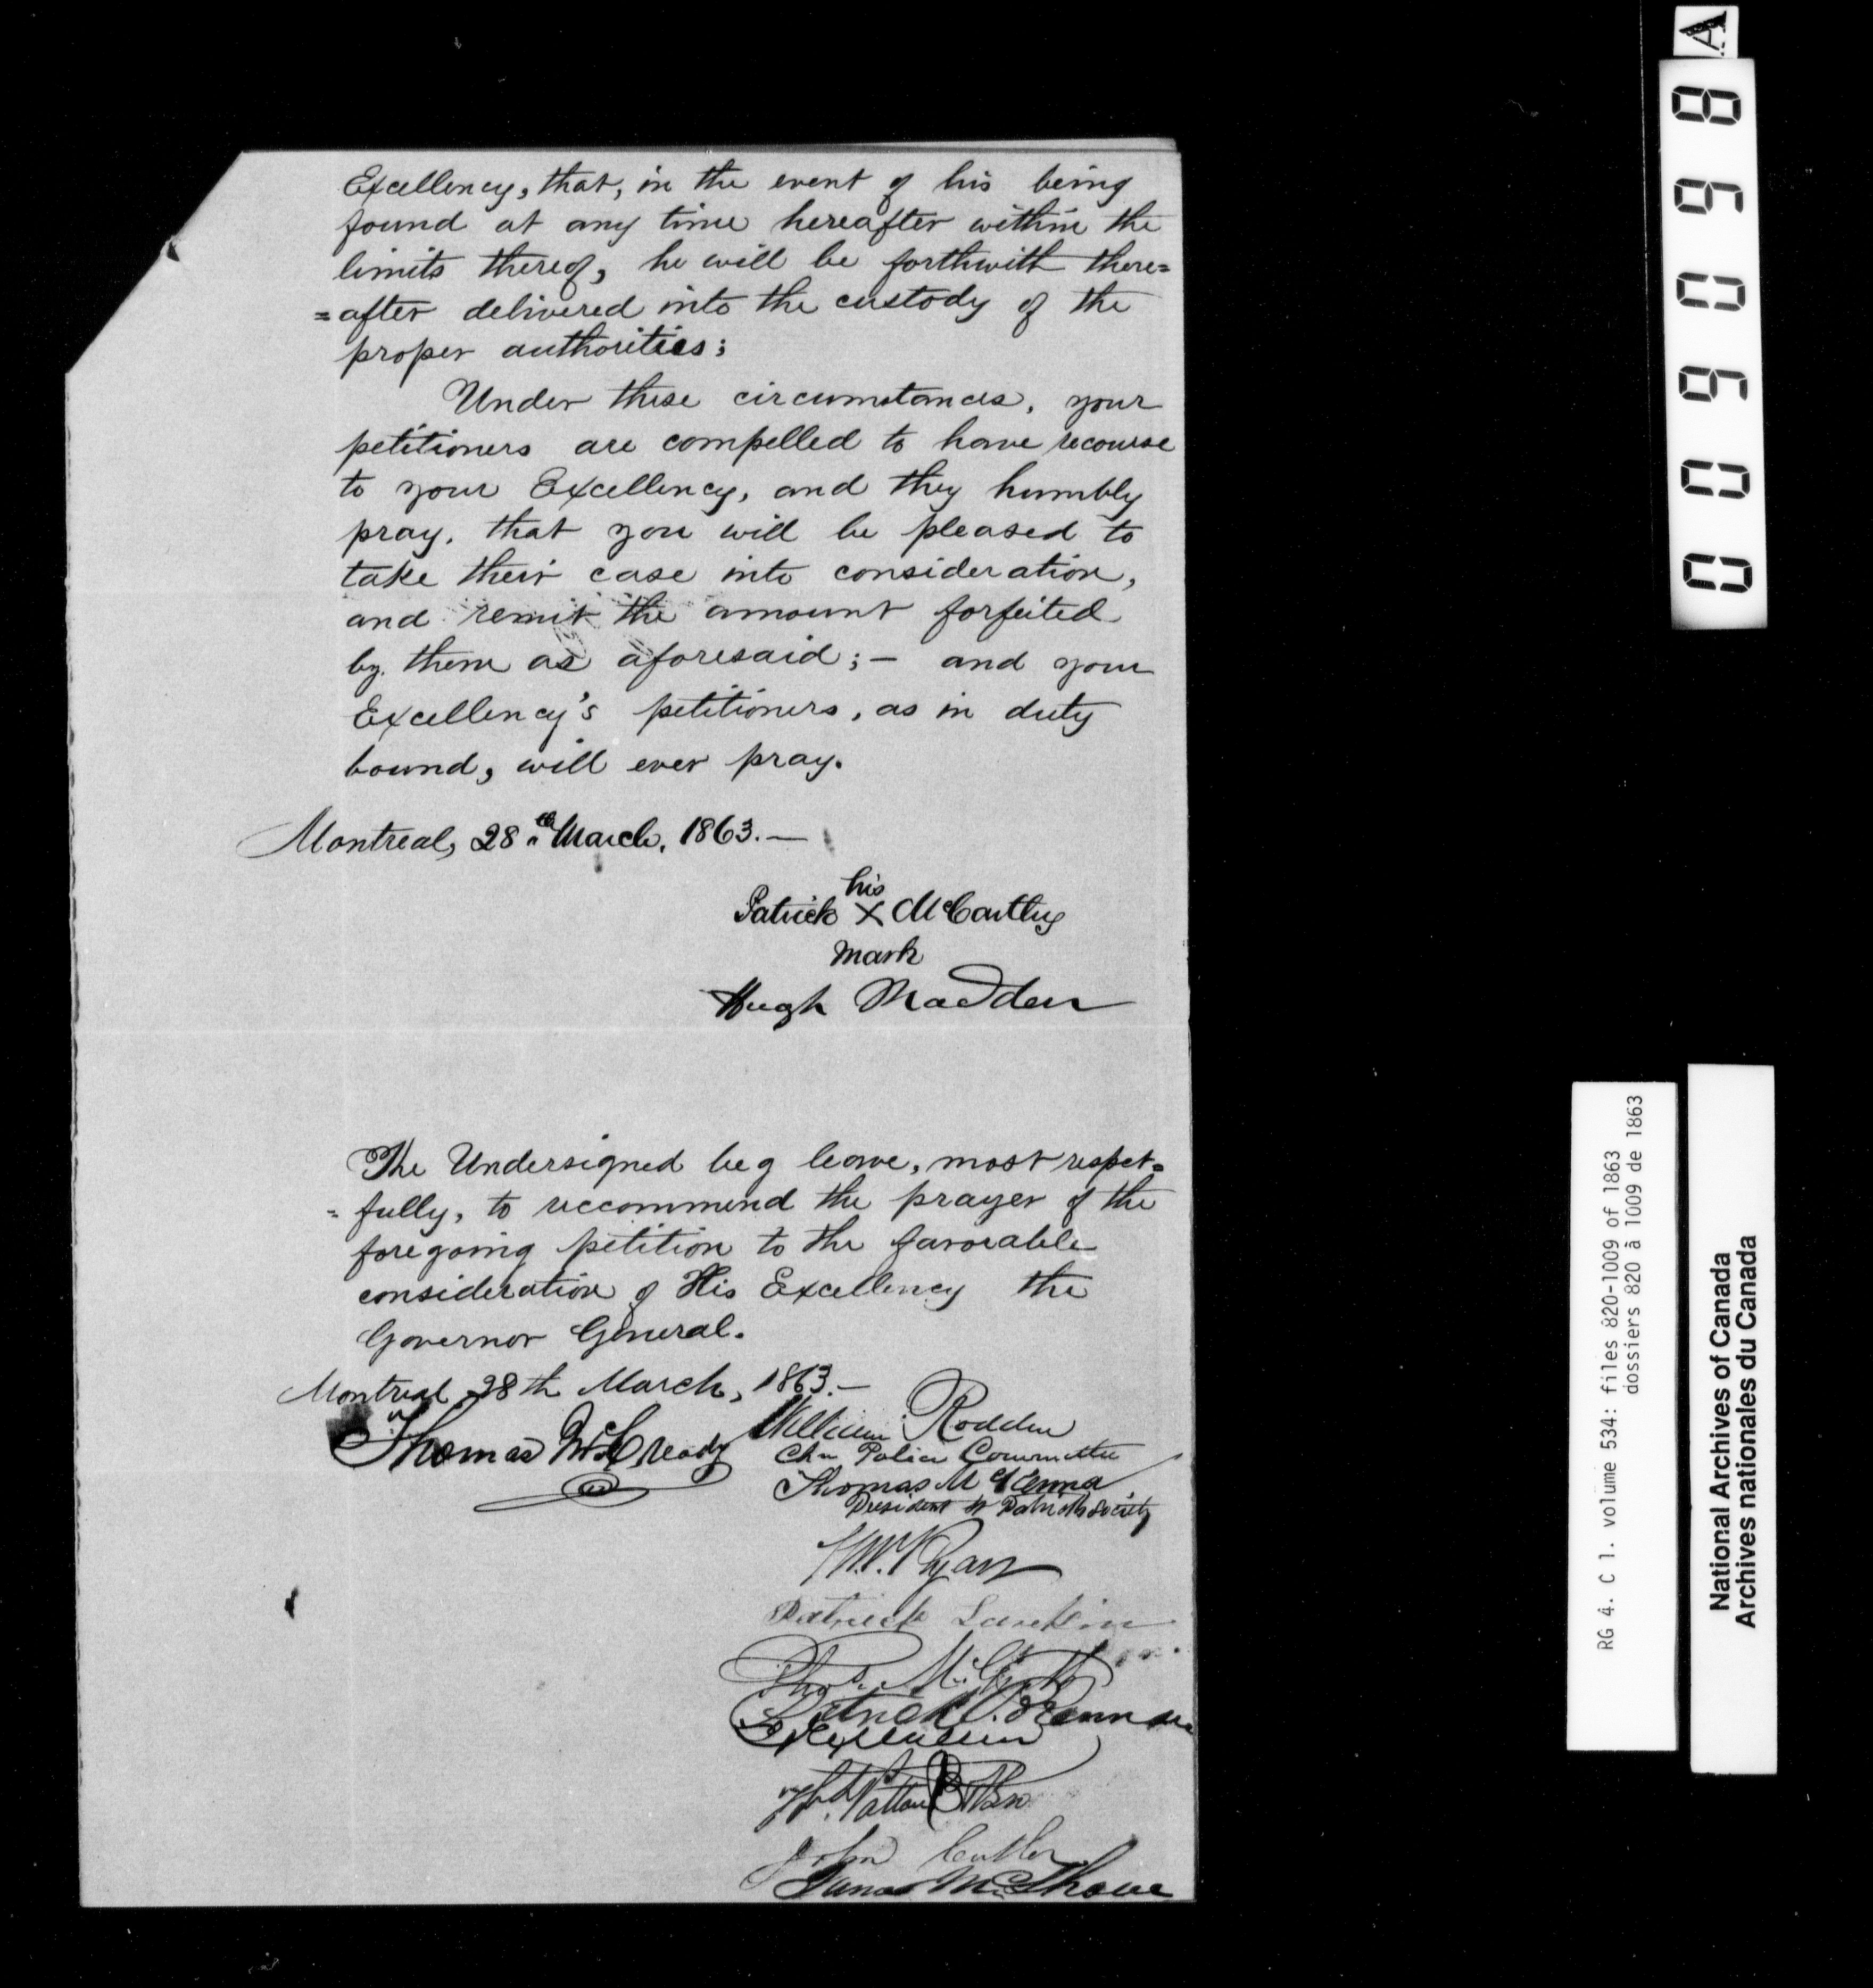 Excellency, that, in the event of his being
found at any time hereafter within the
limits thereof, he will be forthwith there=
=after delivered into the custody of the
proper authorities;
Under these circumstances, your
petitioners are compelled to have recourse
to your Excellency, and they humbly
pray, that you will be pleased to
take their case into consideration,
and remit the amount forfeited
by them as aforesaid; – and your
Excellency's petitioners, as in duty
bound, will ever pray.
Montreal, 28th March, 1863. —
his
Patrick X McCarthy
mark
Hugh Madden
The Undersigned beg leave, most respect=
=fully, to reccommend the prayer of the
foregoing petition to the favorable
consideration of His Excellency the
Governor General.
Montreal, 28th March, 1863. —
Thomas McCready
William Rodden
Chn Police Committee
Thomas McKenna
President St Patricks Society
Ryan
Patrick Larkin
Patrick Brennan
John Cutler
James McShane
000960998 A
RG 4. C 1. volume 534: files 820-1009 of 1863
dossiers 820 à 1009 de 1863
National Archives of Canada
Archives nationales du Canada